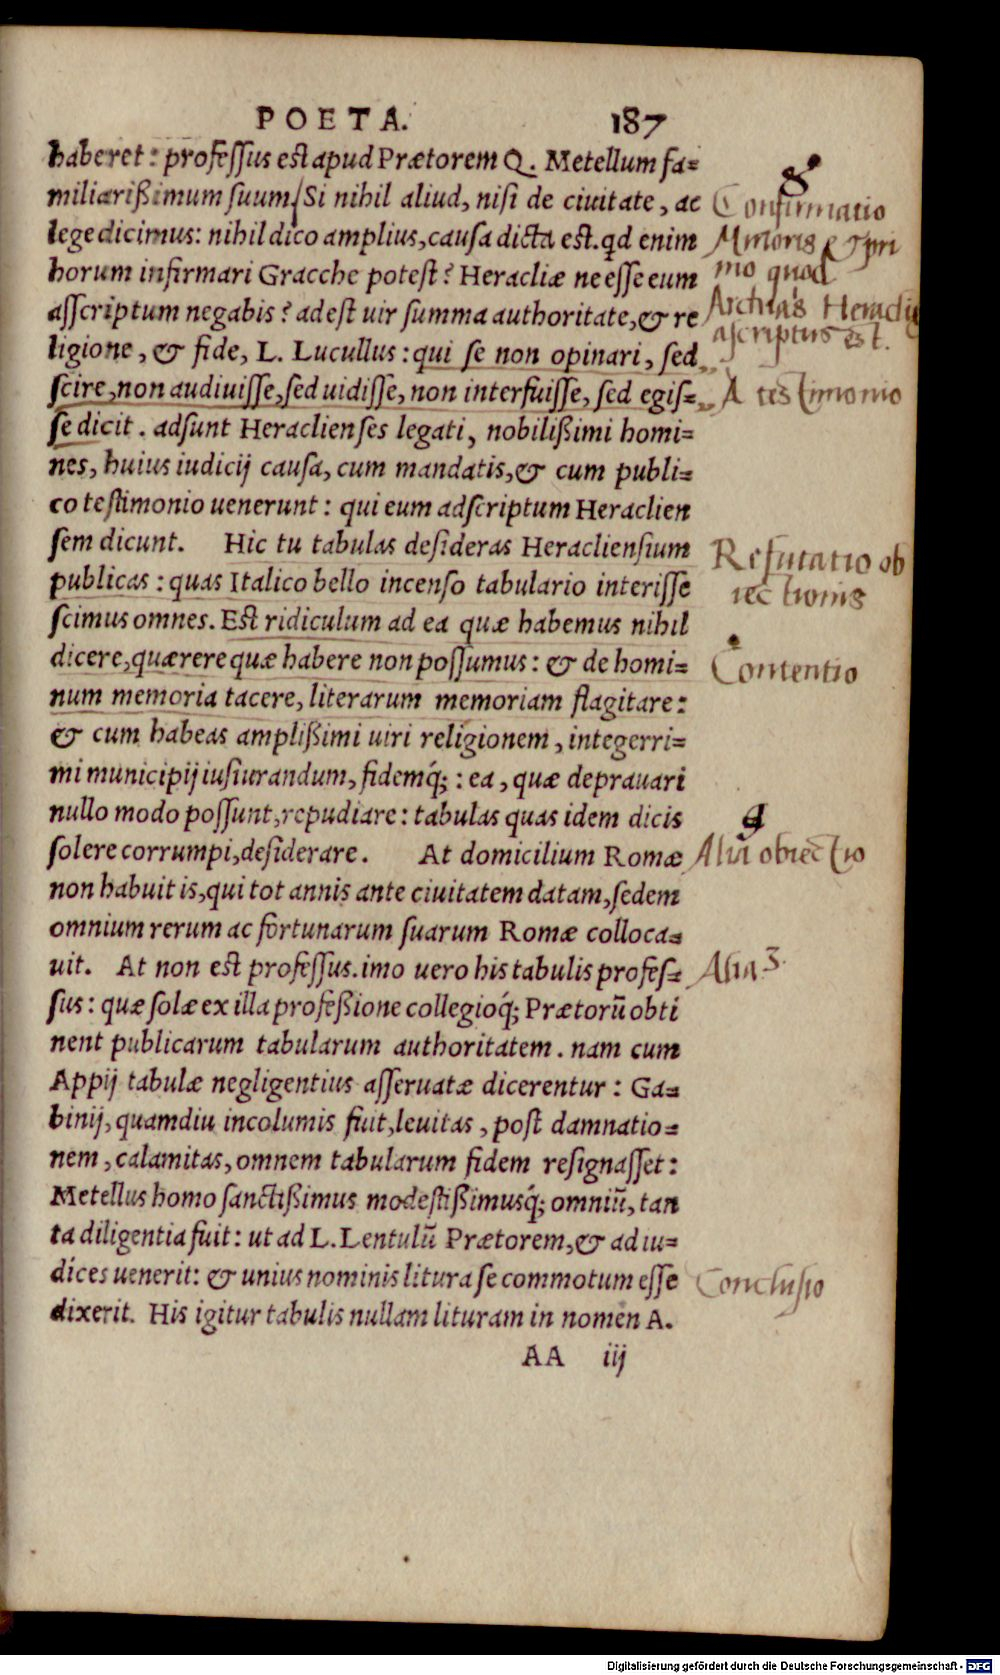 POETA. 187
haberet: professus est apud Prætorem Q. Metellum fa-
miliarißimum suum. Si nihil aliud, nisi de ciuitate, ac
lege dicimus: nihil dico amplius, causa dicta est. qd enim
horum infirmari Gracche potest? Heracliæ ne esse eum
asscriptum negabis? adest uir summa authoritate, & re
ligione, & fide, L. Lucullus: qui se non opinari, sed
scire, non audiuisse, sed uidisse, non interfuisse, sed egis-
se dicit. adsunt Heraclienses legati, nobilißimi homi-
nes, huius iudicij causa, cum mandatis, & cum publi-
co testimonio uenerunt: qui eum adscriptum Heraclien
sem dicunt. Hic tu tabulas desideras Heracliensium
publicas: quas Italico bello incenso tabulario interisse
scimus omnes. Est ridiculum ad ea quæ habemus nihil
dicere, quærere quæ habere non possumus: & de homi-
num memoria tacere, literarum memoriam flagitare:
& cum habeas amplißimi uiri religionem, integerri-
mi municipij iusiurandum, fidemq́;: ea, quæ deprauari
nullo modo possunt, repudiare: tabulas quas idem dicis
solere corrumpi, desiderare. At domicilium Romæ
non habuit is, qui tot annis ante ciuitatem datam, sedem
omnium rerum ac fortunarum suarum Romæ colloca-
uit. At non est professus. imo uero his tabulis profes-
sus: quæ solæ ex illa profeßione collegioq́; Prætorũ obti
nent publicarum tabularum authoritatem. nam cum
Appij tabulæ negligentius asseruatæ dicerentur: Ga-
binij, quamdiu incolumis fuit, leuitas, post damnatio-
nem, calamitas, omnem tabularum fidem resignasset:
Metellus homo sanctißimus modestißimusq́; omniũ, tan
ta diligentia fuit: ut ad L. Lentulũ Prætorem, & ad iu-
dices uenerit: & unius nominis litura se commotum esse
dixerit. His igitur tabulis nullam lituram in nomen A.
AA iij
8
Confirmatio
Minoris & pri
mo quod
Archias Heracliæ
ascriptus est.
A testimonio
Refutatio ob
iectionis
Contentio
9
Alia obiectio
Alia 3.
Conclusio
Digitalisierung gefördert durch die Deutsche Forschungsgemeinschaft - DFG